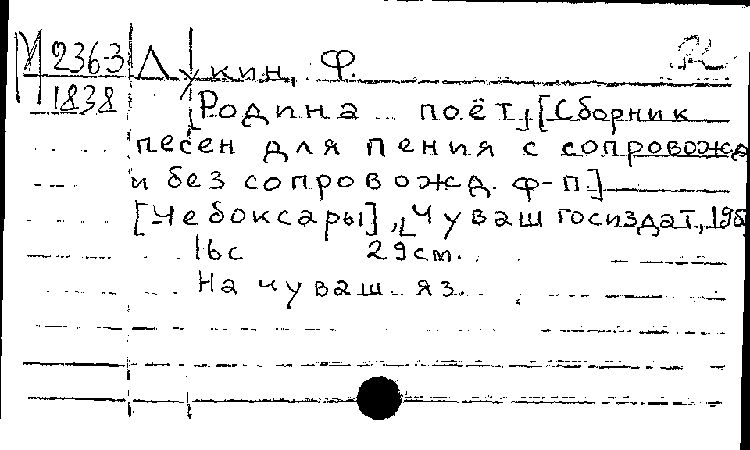 М 236-3
1838
Лукин, Ф.
[Родина поёт] [Сборник
песен для пения с сопровожд
и без сопровожд. ф-п]
[Чебоксары], Чувашгосиздат,
16с 29см.
На чуваш яз.